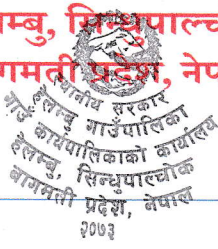 म्बु, सिन्धुपाल्च
गमती प्रदेश, नेप
स्थानीय सरकार
हेलम्बु गाउँपालिका
गाउँ कार्यपालिकाको कार्यालय
हेलम्बु, सिन्धुपाल्चोक
बागमती प्रदेश, नेपाल
२०७३